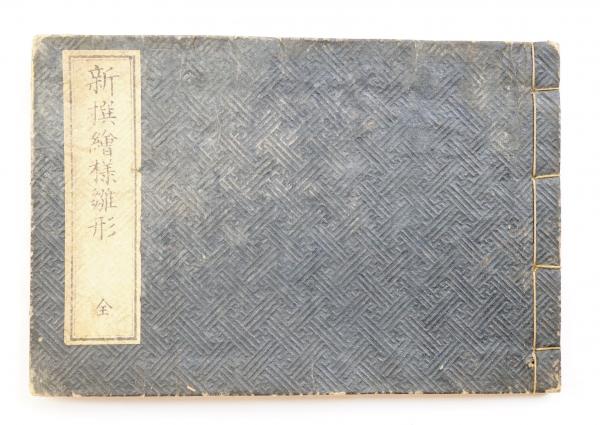 新撰繪様雛形
全